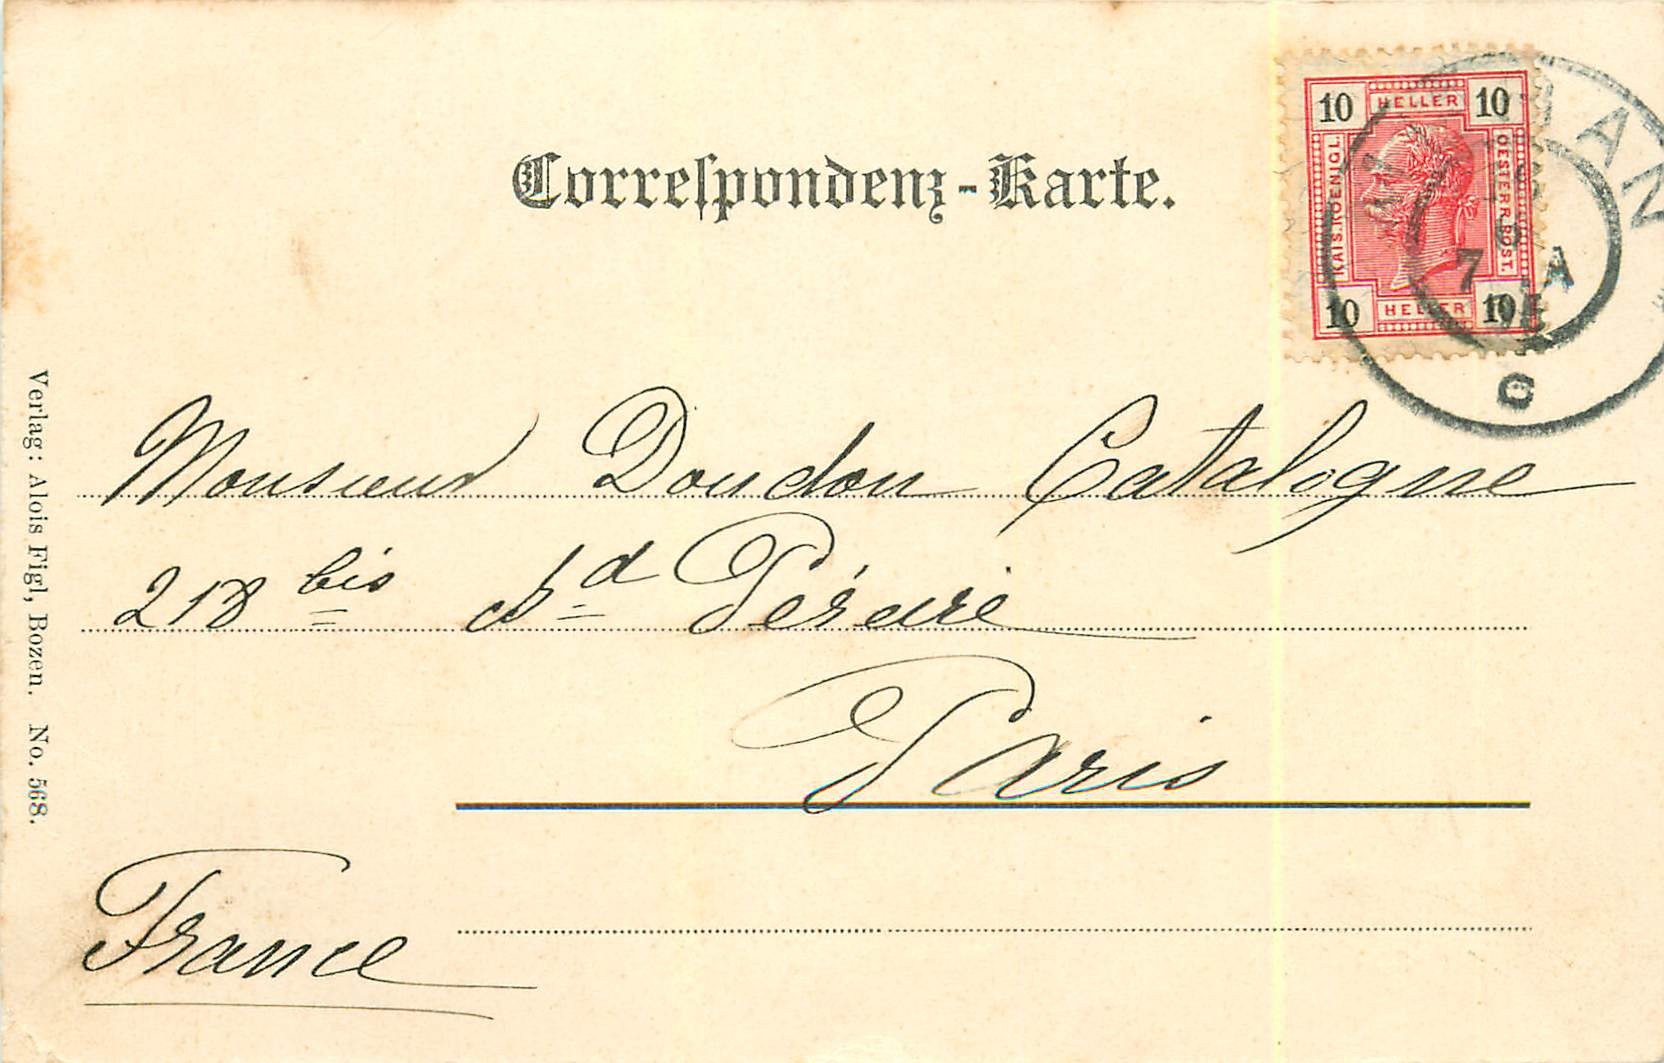 Correspondenz-Karte.
10 HELLER 10
KAIS. KOENIGL.
OESTERR. POST.
10 HELLER 10
7 A
C
Monsieur Doudon Catalogne
218 bis Bd Péreire
Paris
France
Verlag: Alois Figl, Bozen. No. 568.